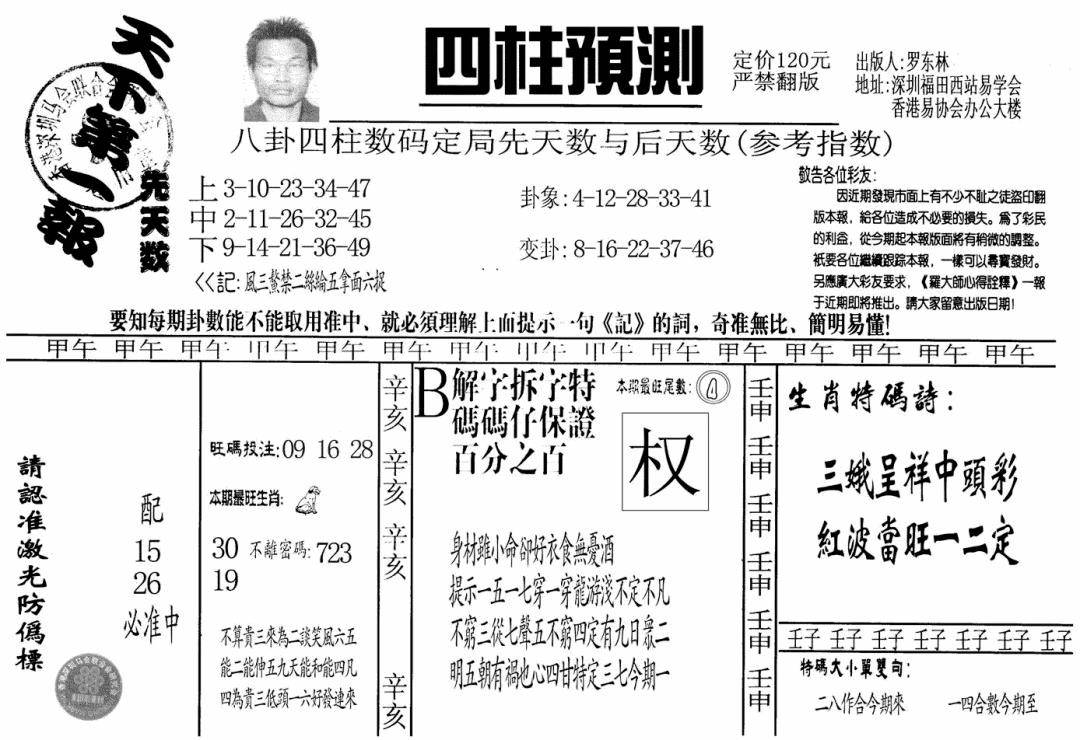 天下第一報
四柱預測
定价120元
严禁翻版
出版人:罗东林
地址:深圳福田西站易学会
香港易协会办公大楼
八卦四柱数码定局先天数与后天数(参考指数)
先天数
上 3-10-23-34-47
中 2-11-26-32-45
下 9-14-21-36-49
<<記:風三鰲禁二絲綸五拿面六捉
卦象:4-12-28-33-41
变卦:8-16-22-37-46
敬告各位彩友:
因近期發現市面上有不少不恥之徒盜印翻
版本報，給各位造成不必要的損失。為了彩民
的利益，從今期起本報版面將有稍微的調整。
衹要各位繼續跟踪本報，一樣可以尋寶發財。
另應廣大彩友要求，《羅大師心得詮釋》一報
于近期即將推出。請大家留意出版日期!
要知每期卦數能不能取用准中、就必須理解上面提示一句《記》的詞，奇准無比、簡明易懂!
甲午 甲午 甲午 甲午 甲午 甲午 甲午 甲午 甲午 甲午 甲午 甲午 甲午 甲午 甲午
請認准激光防僞標
配
15
26
必准中
旺碼投注:09 16 28
本期最旺生肖:
30 不離密碼:723
19
不算貴三來為二談笑風六五
能二能伸五九天能和能四凡
四為貴三低頭一六好發連來
辛亥
辛亥
辛亥
辛亥
B解字拆字特
碼碼仔保證
百分之百
本期最旺尾數:
权
身材雖小命卻好衣食無憂酒
提示一五一七穿一穿龍游淺不定不凡
不窮三從七聲五不窮四定有九日衆二
明五朝有禍也心四甘特定三七今期一
壬申
壬申
壬申
壬申
壬申
壬申
生肖特碼詩:
三娥呈祥中頭彩
紅波當旺一二定
壬子 壬子 壬子 壬子 壬子 壬子 壬子
特碼大小單雙句:
二八作合今期來 一四合數今期至